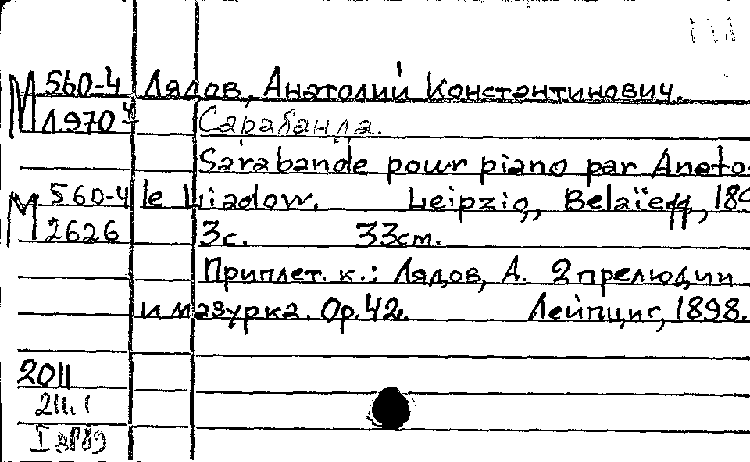 М 560-4 Лядов, Анатолий Константинович.
Л970 Сарабанда.
Sarabande pour piano par Anato-
М 560-4 le Liadow. Leipzig, Belaïeff, 189
2626 3с. 33см.
Приплет. к.: Лядов, А. 2 прелюдии
и мазурка. Op.42. Лейпциг, 1898.
2011